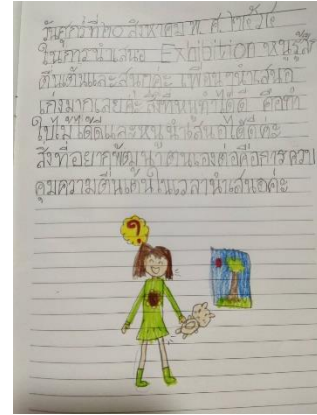 วันศุกร์ที่ ๓๐ สิงหาคม พ.ศ. ๒๕๖๗
ในการนำเสนอ Exhibition หนูรู้สึก
ตื่นเต้นและสนุกค่ะ เพื่อนๆนำเสนอ
เก่งมากเลยค่ะ สิ่งที่หนูทำได้ดี คือทำ
ใบไม้ได้ดีและหนูนำเสนอได้ดีค่ะ
สิ่งที่อยากพัฒนาตนเองต่อคือการควบ
คุมความตื่นเต้นในเวลานำเสนอค่ะ
?